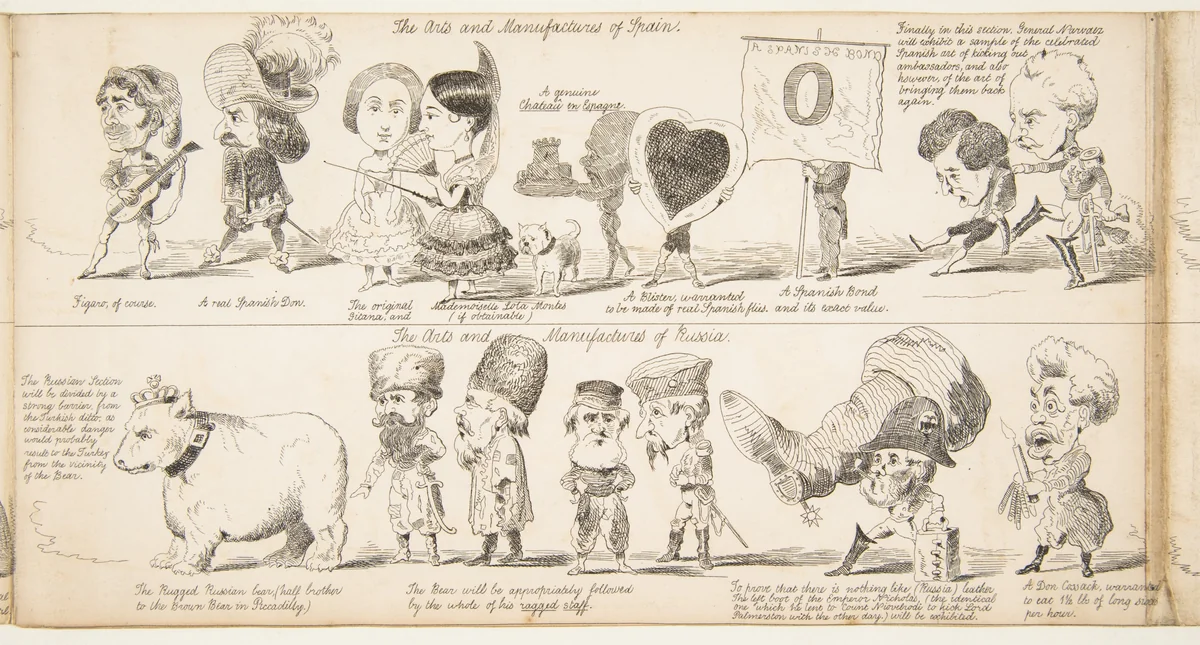 The Arts and Manufactures of Spain.
Finally in this section, General Narvaez
will exhibit a sample of the celebrated
Spanish art of kicking out
ambassadors, and also
however, of the art of
bringing them back
again.
A genuine
Chateau en Espagne.
A SPANISH BOND
0
Figaro, of course.
A real Spanish Don.
The original
Gitana, and
Mademoiselle Lola Montes
(if obtainable)
A Blister, warranted
to be made of real Spanish flies.
A Spanish Bond
and its exact value.
The Arts and Manufactures of Russia.
The Russian Section
will be divided by a
strong barrier, from
the Turkish ditto, as
considerable danger
would probably
result to the Turkey
from the vicinity
of the Bear.
The Rugged Russian bear, (half brother
to the Brown Bear in Piccadilly.)
The Bear will be appropriately followed
by the whole of his ragged staff.
To prove that there is nothing like (Russia) leather
The left boot of the Emperor Nicholas, (the identical
one which he lent to Count
to kick Lord
Palmerston with the other day.) will be exhibited.
A Don Cossack, warranted
to eat 1½ lb of long sixes
per hour.